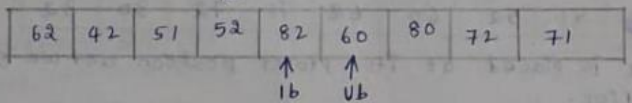 62 42 51 52 82 60 80 72 71
lb Ub